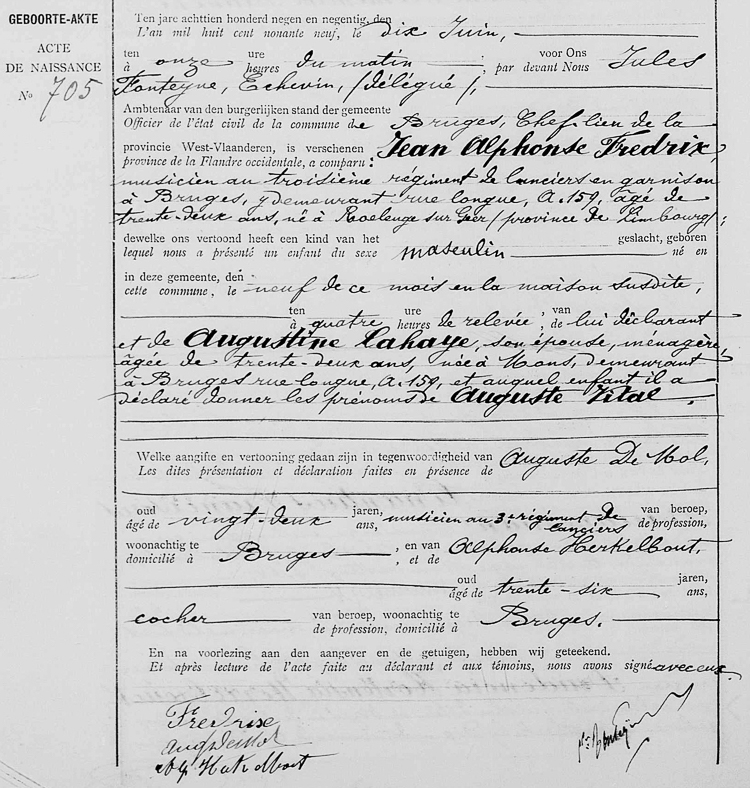 GEBOORTE-AKTE
ACTE
DE NAISSANCE
No 705
Ten jare achttien honderd negen en negentig, den
L'an mil huit cent nonante neuf, le dix Juin,
ten ure voor Ons
à onze heures du matin ; par devant Nous Jules
Fonteyne, Echevin, /délégué/,
Ambtenaar van den burgerlijken stand der gemeente
Officier de l'état civil de la commune de Bruges, Chef-lieu de la
provincie West-Vlaanderen, is verschenen
province de la Flandre occidentale, a comparu : Jean Alphonse Fredrix,
musicien au troisième régiment de lanciers en garnison
à Bruges, y demeurant rue longue, A.159, âgé de
trente-deux ans, né à Roclenge sur Geer /province de Limbourg/;
dewelke ons vertoond heeft een kind van het geslacht, geboren
lequel nous a présenté un enfant du sexe masculin né en
in deze gemeente, den
cette commune, le neuf de ce mois en la maison susdite,
ten ure van
à quatre heures de relevée, de lui déclarant
et de Augustine Lahaye, son épouse, ménagère,
âgée de trente-deux ans, née à Mons, demeurant
à Bruges rue longue, A.159, et auquel enfant il a
déclaré donner les prénoms de Auguste Vital.
Welke aangifte en vertooning gedaan zijn in tegenwoordigheid van
Les dites présentation et déclaration faites en présence de Auguste De Mol,
oud jaren, van beroep,
âgé de vingt-deux ans, musicien au 3e régiment de lanciers de profession,
woonachtig te , en van
domicilié à Bruges , et de Alphonse Herkelbout,
oud jaren,
âgé de trente-six ans,
cocher van beroep, woonachtig te
de profession, domicilié à Bruges.
En na voorlezing aan den aangever en de getuigen, hebben wij geteekend.
Et après lecture de l'acte faite au déclarant et aux témoins, nous avons signé avec eux.
Fredrix